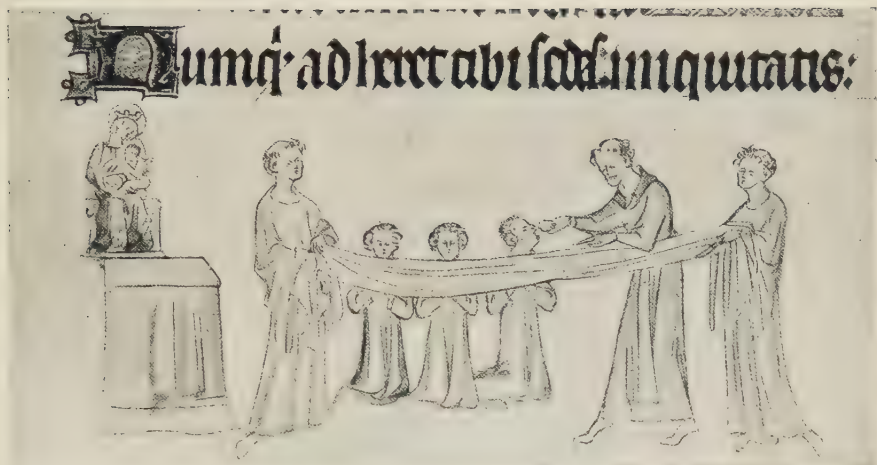 Numq; adheret tibi sedes iniquitatis: